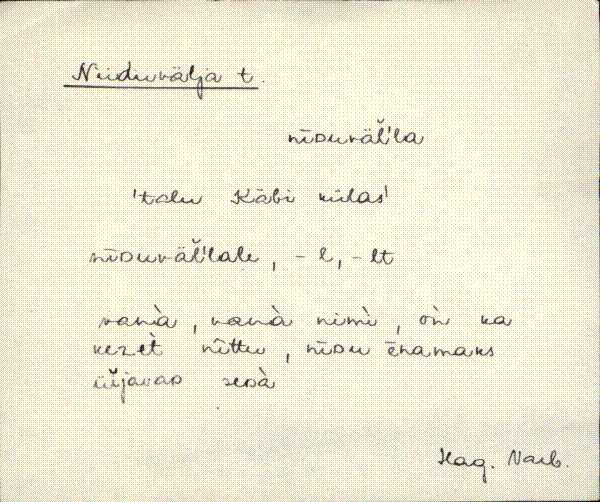 Niiduvälja t.
nīᴅuväľľa
'talu Käbi külas'
nīᴅuväľľale, -l, -lt
vanà, vanà nimì, on ka
kezèt nīttu, nīᴅu ēnamaks
üjavaᴅ seᴅà
Hag. Narb.